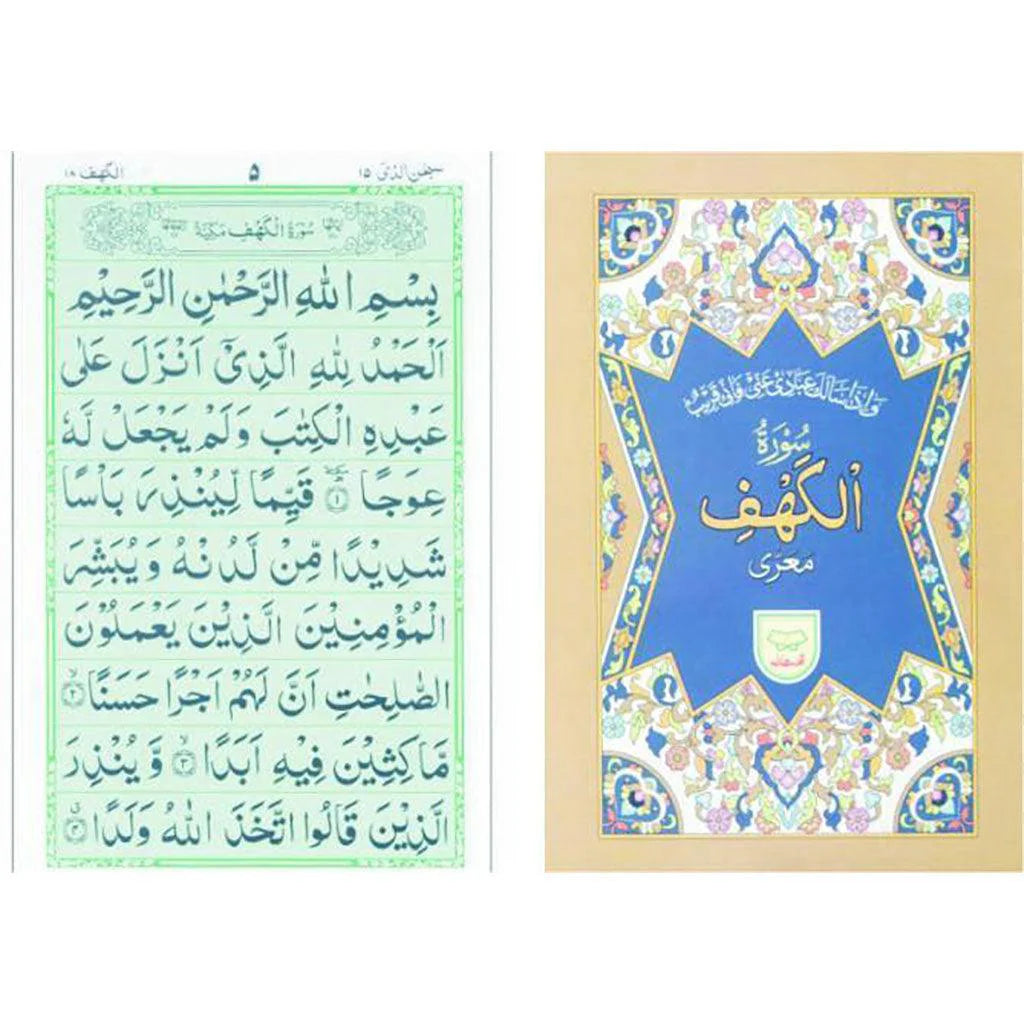 الكهف ١٨
۵
سبحٰن الذی ١٥
سُوْرَةُ الْكَهْفِ مَكِّيَّةٌ
بِسْمِ اللّٰهِ الرَّحْمٰنِ الرَّحِيْمِ
اَلْحَمْدُ لِلّٰهِ الَّذِیْۤ اَنْزَلَ عَلٰی
عَبْدِهِ الْكِتٰبَ وَلَمْ يَجْعَلْ لَّهٗ
عِوَجًا ١ قَيِّمًا لِّيُنْذِرَ بَاْسًا
شَدِيْدًا مِّنْ لَّدُنْهُ وَيُبَشِّرَ
الْمُؤْمِنِيْنَ الَّذِيْنَ يَعْمَلُوْنَ
الصّٰلِحٰتِ اَنَّ لَهُمْ اَجْرًا حَسَنًا ٢
مَّاكِثِيْنَ فِيْهِ اَبَدًا ٣ وَّيُنْذِرَ
الَّذِيْنَ قَالُوا اتَّخَذَ اللّٰهُ وَلَدًا ٤
وَاِذَا سَاَلَكَ عِبَادِیْ عَنِّیْ فَاِنِّیْ قَرِيْبٌ
سُوْرَةُ
الْكَهْفِ
مَعَرّٰی